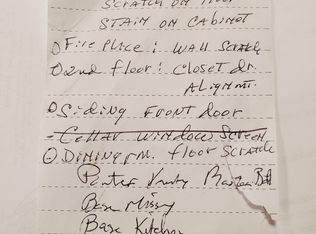 SCRATCH ON FLOOR
STAIN ON CABINET
O Fire Place: WALL SCRATCH
O 2nd floor: Closet dr.
ALIGNMT.
O Siding FRONT door
- Cellar window Screen
O DINING rm. floor SCRATCH
Painter Vanity
Base Missy
Base Kitchen